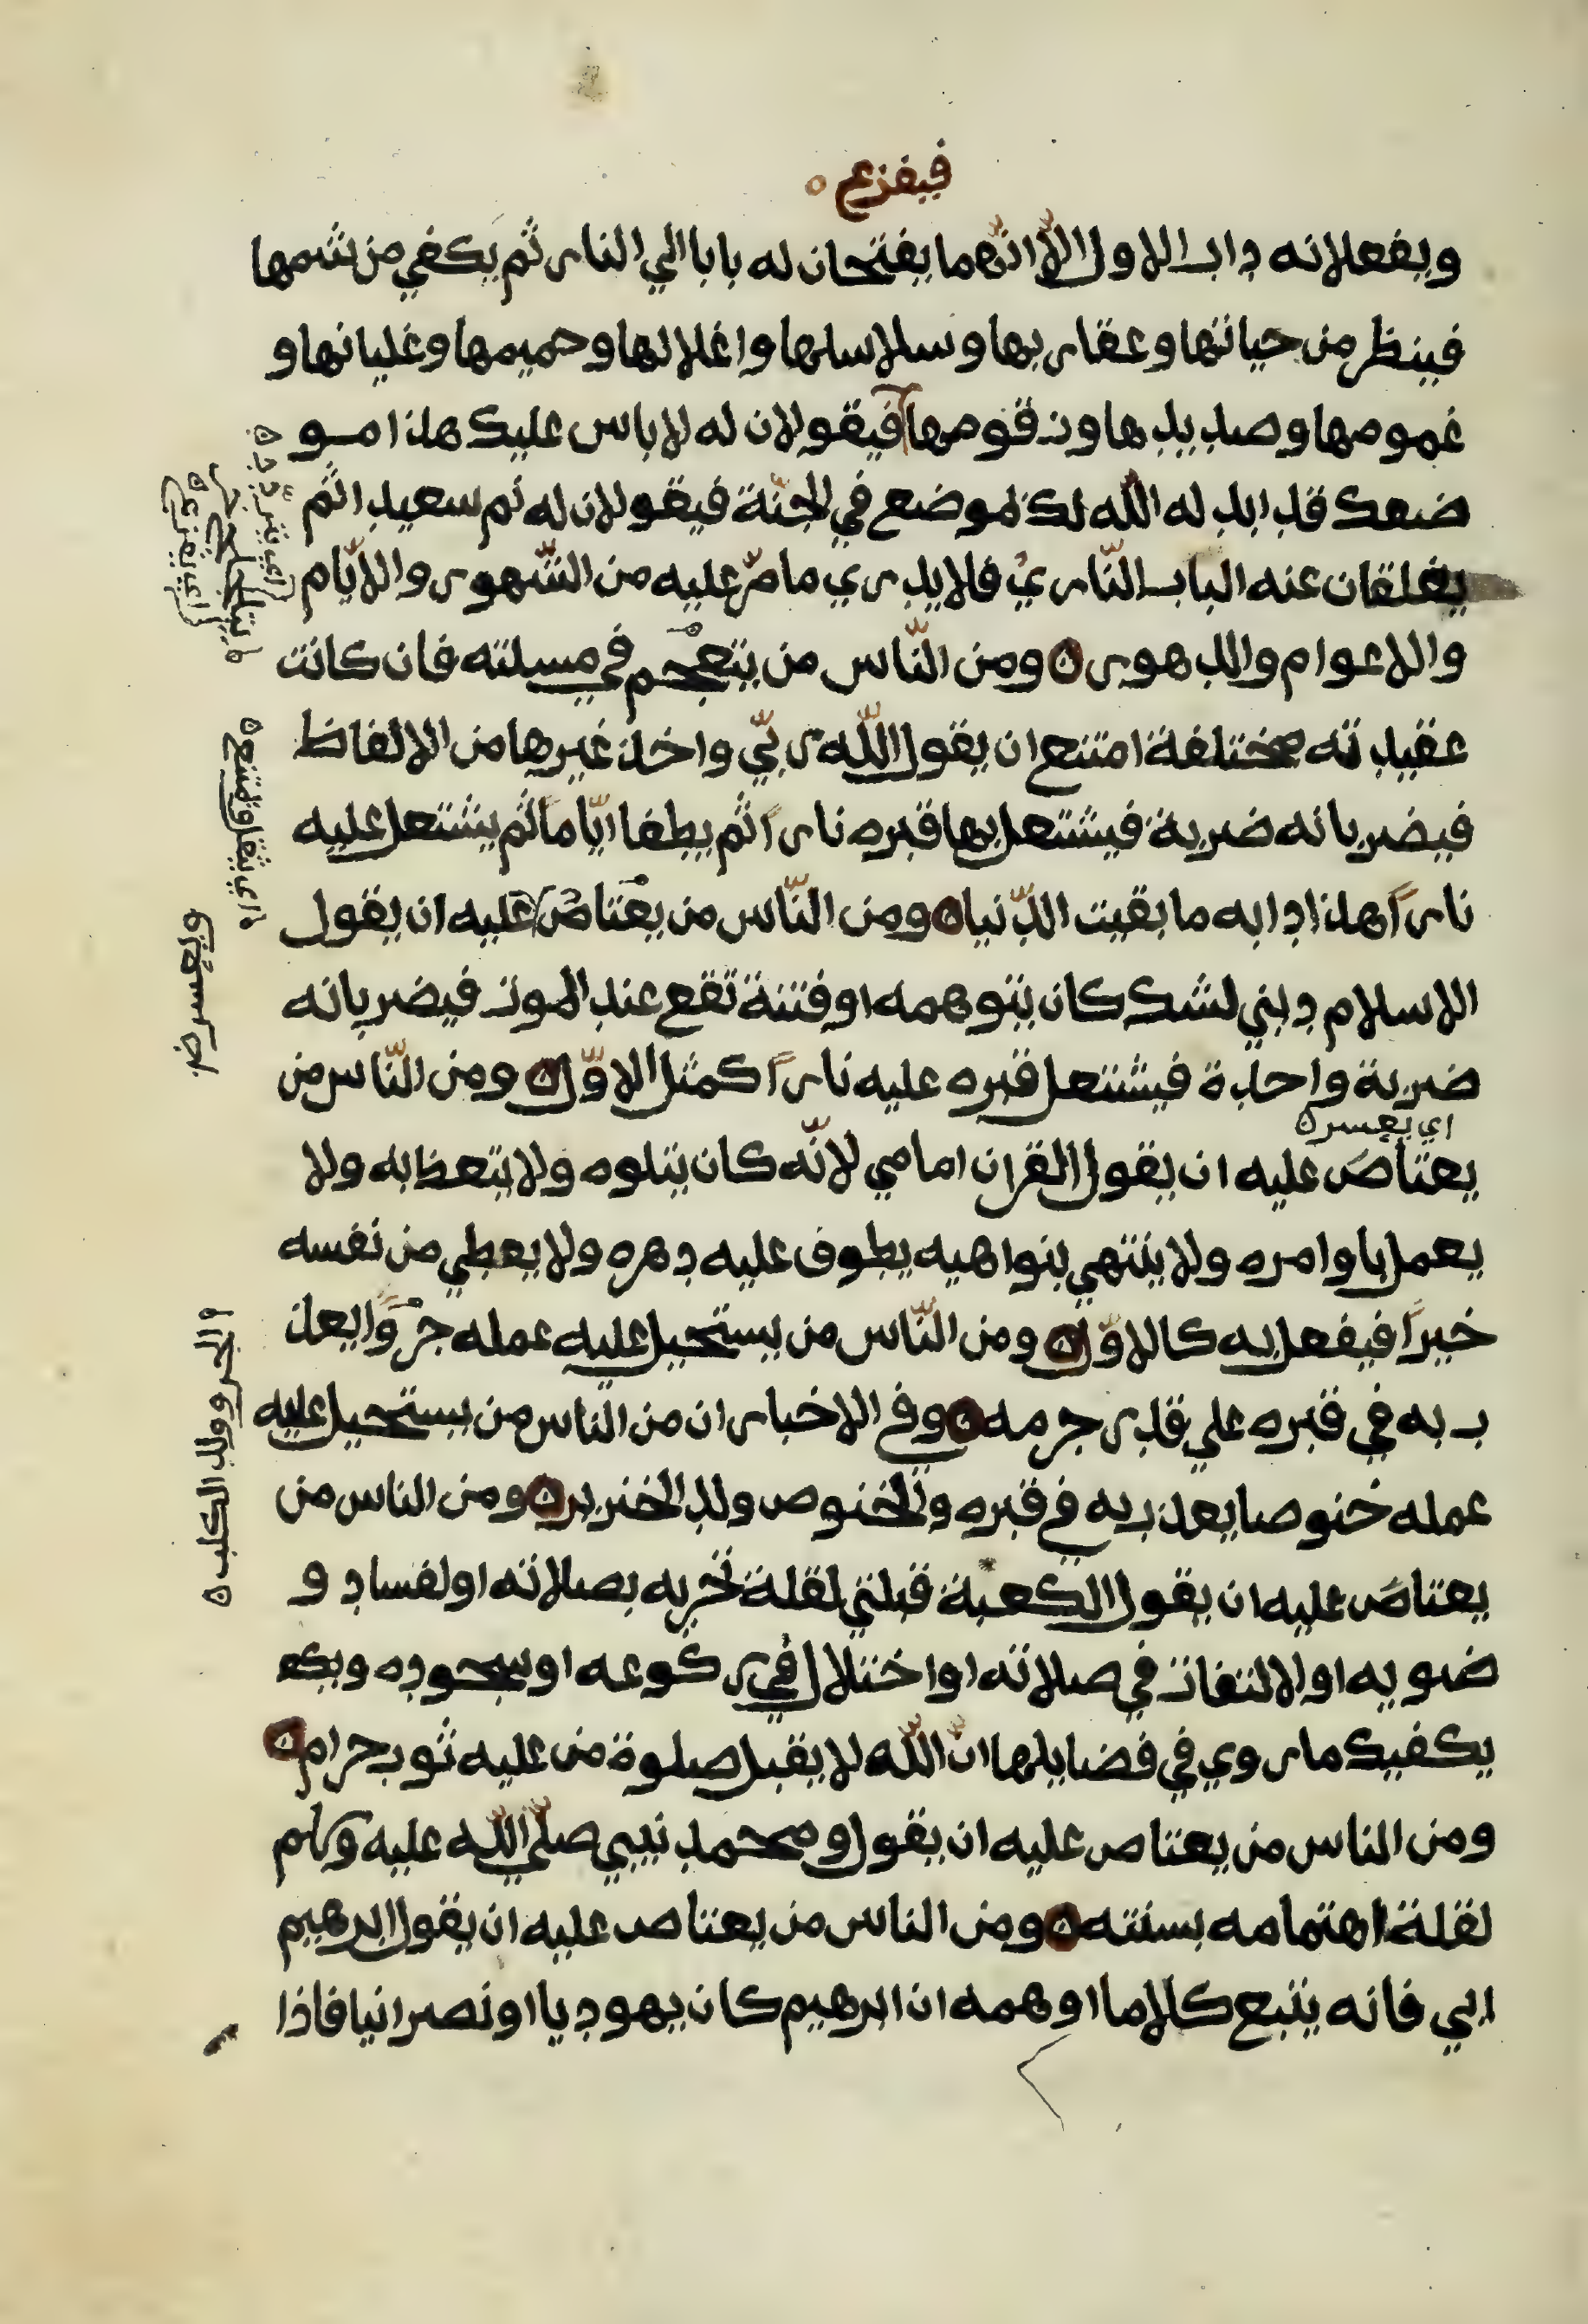 فيفزع ه
ويفعلانه داب الاول الّا انّهما يفتحان له بابا الي النار ثم يكفي من نشمها
فينظر من حياتها وعقاربها وسلاسلها واغلالها وحميمها وغليانها و
غمومها وصديدها وزقومها فيقولان له لا باس عليك هذا مو
ضعك قد ابد له الله لك لموضع في الجنّة فيقولان له نم سعيد اثم
يغلقان عنه الباب النّاري فلا يدري ما مرّ عليه من الشّهور والايّام
والاعوام والدهور ه ومن النّاس من يتعجم في مسلته فان كانت
عقيدته مختلفة امتنع ان يقول اللّه ربّي واخذ غيرها من الالفاظ
فيضربانه ضربة فيشتعل بها قبره ناراً ثم يطفا ايّاماً ثم يشتعل عليه
ناراً هذا دابه ما بقيت الدّنيا ه ومن النّاس من يعتاص عليه ان يقول
الاسلام ديني لشك كان يتوهمه او فتنة تقع عند الموت فيضربانه
ضربة واحدة فيشتعل قبره عليه ناراً كمثل الاوّل ه ومن النّاس من
اي يعسر ه
يعتاص عليه ان يقول القران امامي لانّه كان يتلوه ولا يتعظ به ولا
يعمل باوامره ولا ينتهي بنواهيه يطوف عليه دهره ولا يعطي من نفسه
خيراً فيفعل به كالاوّل ه ومن النّاس من يستحيل عليه عمله جروًا يعذ
ب به في قبره علي قدر جرمه ه وفي الاخبار ان من الناس من يستحيل عليه
عمله خنوصا يعذب به في قبره والخنوص ولد الخنرير ه ومن الناس من
يعتاص عليه ان يقول الكعبة قبلتي لقلة تحريه بصلاته او لفساد و
ضويه او الالتفات في صلاته او اختلال في ركوعه او سجوده ويكع
يكفيك ما روي في فضايلها انّ اللّه لا يقبل صلوة من عليه ثوب حرام ه
ومن الناس من يعتاص عليه ان يقول ومحمد نبيي صلّي اللّه عليه وسلم
لقلة اهتمامه بسنته ه ومن الناس من يعتاص عليه ان يقول ابرهيم
ابي فانه يتبع كلاما اوهمه ان ابرهيم كان يهوديا او نصرانيا فاذا
ويعسر ض
والجر وولد الكلب ه